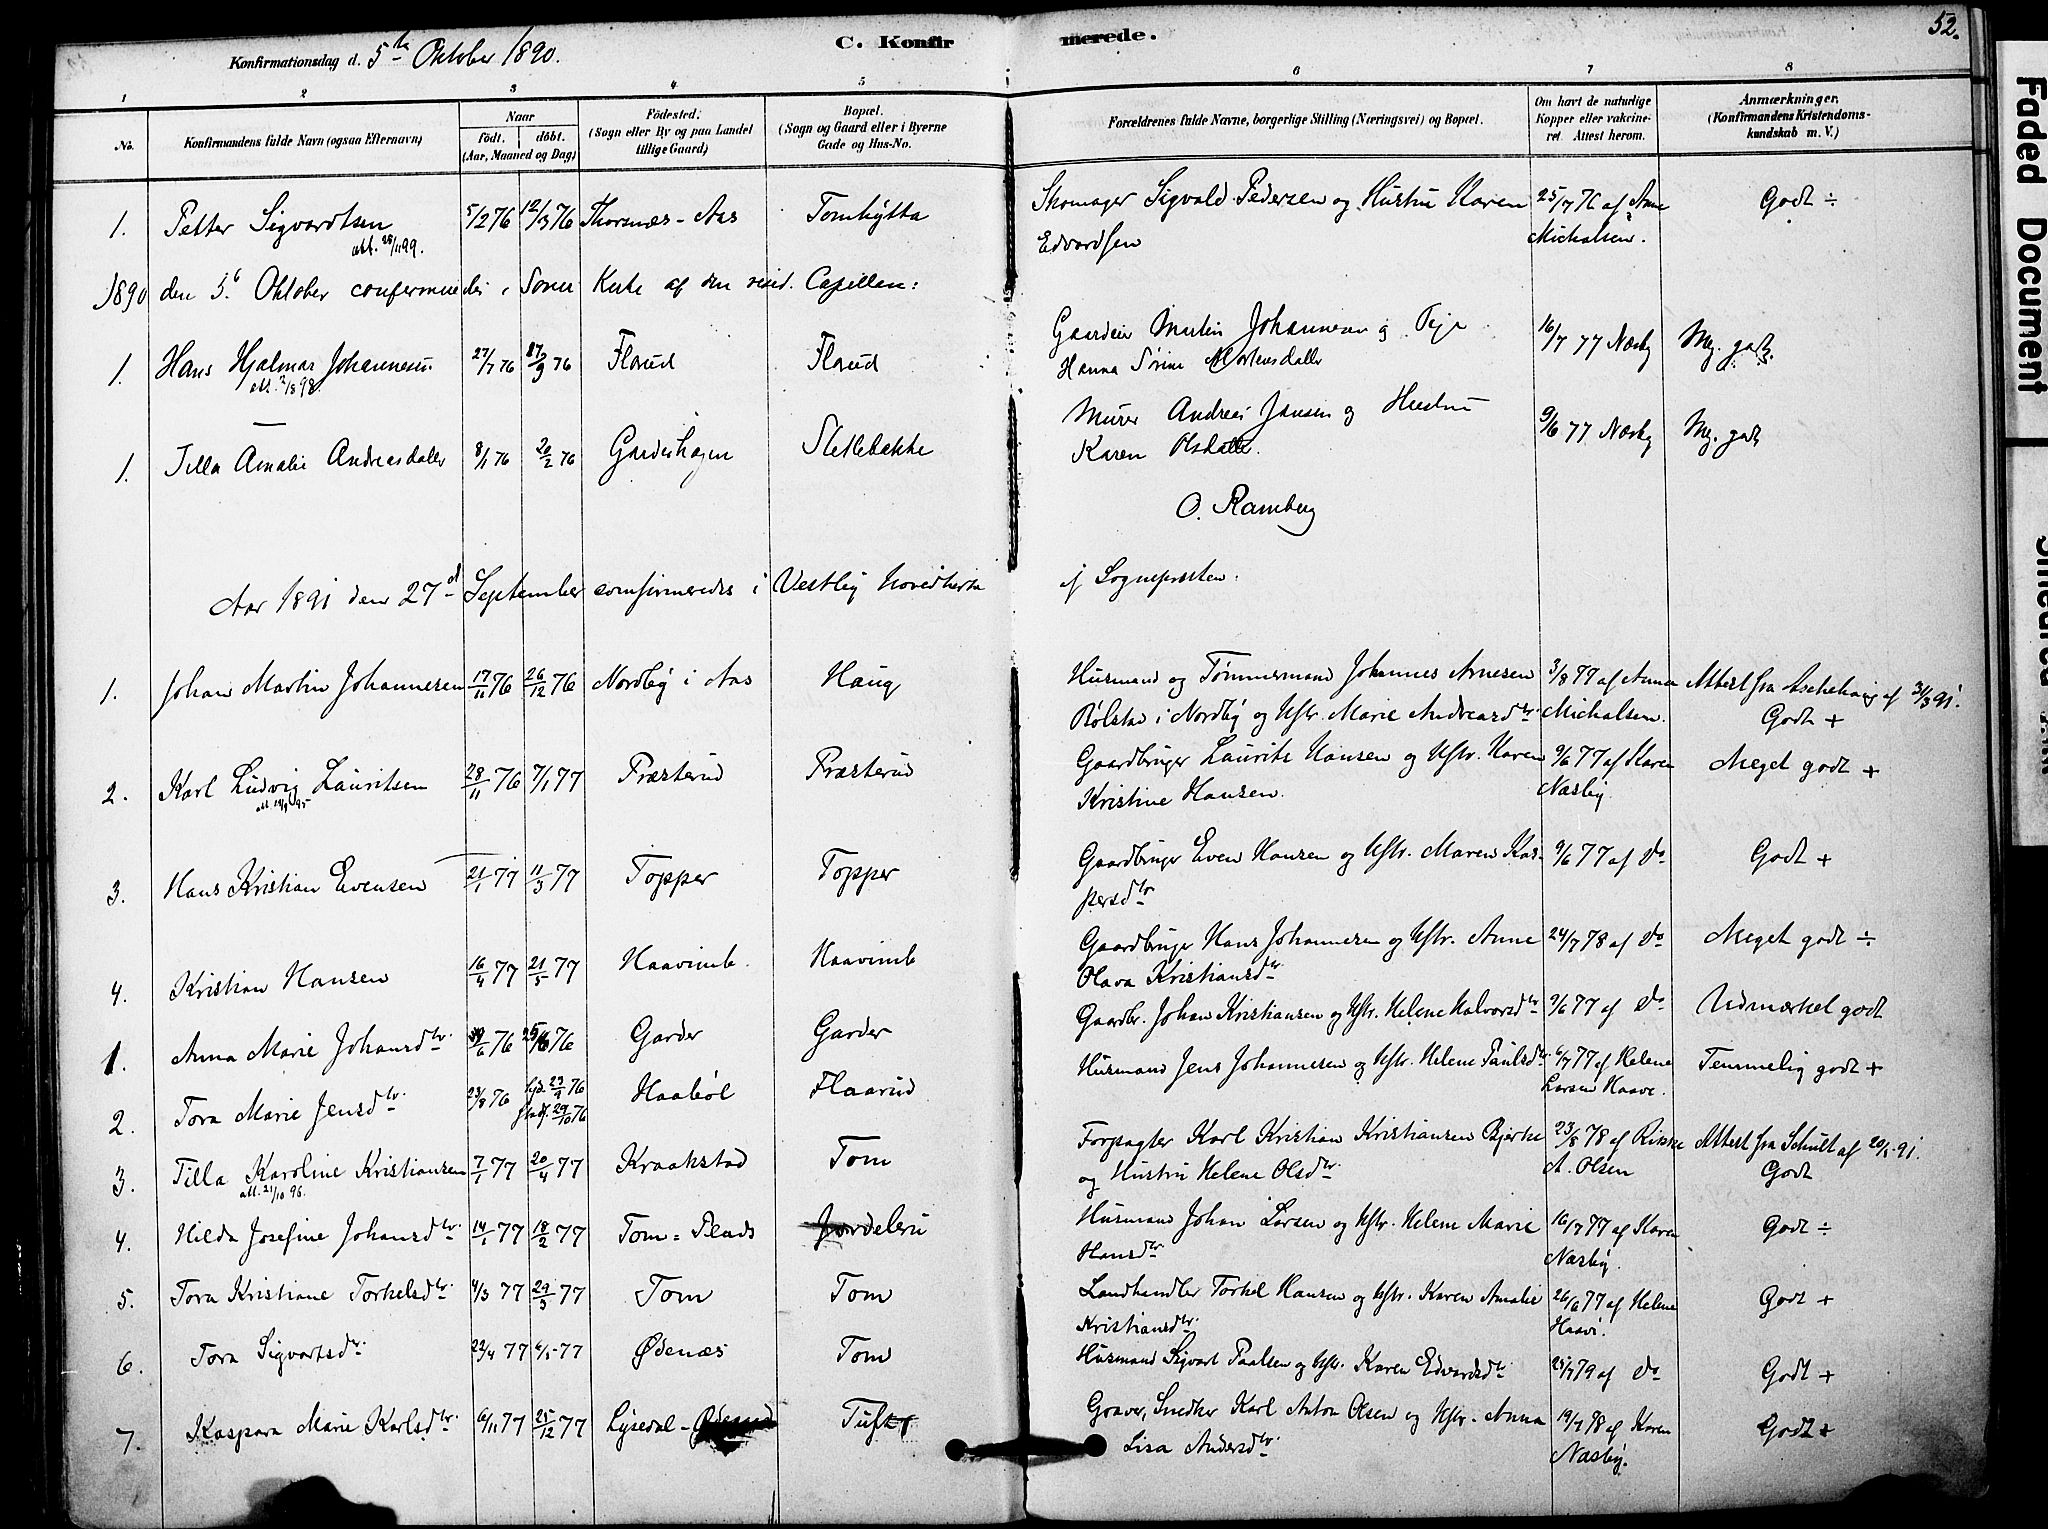 52.
Konfirmationsdag d. 5te Oktober 1890.
C. Konfirmerede.
1 2 3 4 5 6 7 8
No.
Konfirmandens fulde Navn (ogsaa Efternavn)
Naar
födt. döbt.
(Aar, Maaned og Dag)
Födested,
(Sogn eller By og paa Landet
tillige Gaard)
Bopæl.
(Sogn og Gaard eller i Byerne
Gade og Hus-No.
Forældrenes fulde Navne, borgerlige Stilling (Næringsvei) og Bopæl.
Om havt de naturlige
Kopper eller vakcine-
ret. Attest herom.
Anmærkninger.
(Konfirmandens Kristendoms-
kundskab m. V.)
1. Petter Sigvardtsen 5/2 76 12/3 76 Thornæs - Aas Tomhytta Skomager Sigvald Pedersen og Hustru Karen 25/7 76 af Anne Godt ÷
att. 28/11 99. Edvardsen Michalsen.
1890 den 5te Oktober confirmeredes i Soner Kirke af den resid. Capellan:
1. Hans Hjalmar Johannesen 27/7 76 9 76 Florud Florud Gaardeier Martin Johannesen og Pige 16/7 77 Næsby Mg. godt.
att. 2/8 98. Hanna Sørine Mortensdatter
1. Tilla Amalie Andreasdatter 8/1 76 20/2 76 Garderhagen Sletlebakke Murer Andreas Jansen og Hustru 9/6 77 Næsby Mg. godt
Karen Olsdatter.
O. Ramberg
Aar 1891 den 27d September confirmeredes i Vestby Hovedkirke af Sognepresten:
1. Johan Martin Johannesen 17/11 76 26/12 76 Nordby i Aas Haug Husmand og Tømmermand Johannes Arnesen 3/8 77 af Anna Attest fra Aschehoug af 31/3 91.
Rølstad i Nordby og Hstr. Marie Andreasdtr. Michalsen. Godt +
2. Karl Ludvig Lauritsen 28/11 76 7/1 77 Præsterud Præsterud Gaardbruger Laurits Hansen og Hstr. Karen 9/6 77 af Karen Meget godt +
Kristine Hansen. Næsby
3. Hans Kristian Evensen 21/1 77 11/3 77 Topper Topper Gaardbruger Even Hansen og Hstr. Maren Kas- 9/6 77 af do Godt +
persdtr
4. Kristian Hansen 16/4 77 21/5 77 Haavimb. Haavimb Gaardbruger Hans Johannesen og Hstr. Anne 24/7 78 af do Meget godt ÷
Olava Kristiansdtr
1. Anna Marie Johansdtr. 76 76 Garder Garder Gaardbr. Johan Kristiansen og Hstr. Helene Halvorsdtr 9/6 77 af do Udmærket godt
2. Tora Marie Jensdtr. 23/8 76 76 29/10 76 Haabøl Flaarud Husmand Jens Johannesen og Hstr. Helene Paulsdtr. 6/7 77 af Helene Temmelig godt +
Larsen Haave.
3. Tilla Karoline Kristiansen 7/1 77 20/4 77 Kraakstad Tom Forpagter Karl Kristian Kristiansen Bjerke 23/8 78 af Rikke Attest fra Schult af 20/1 91.
att. 21/10 96. og Hustru Helene Olsdtr A. Olsen Godt
4. Hilda Josefine Johansdtr. 14/1 77 18/2 77 Tom - Plads Husmand Johan Larsen og Hstr. Helene Marie 16/7 77 af Karen Godt ÷
Hansdtr Næsby.
5. Tora Kristiane Torkelsdtr. 4/3 77 29/3 77 Tom Tom Landhandler Torkel Hansen og Hstr. Karen Amalie 26/6 77 af Helene Godt +
Kristiansdtr. Haave.
6. Tora Sigvartsdtr. 22/4 77 6/5 77 Ødenæs Tom Husmand Sigvart Paalsen og Hstr. Karen Edvardsdtr 25/7 79 af do Godt +
7. Kaspara Marie Karlsdtr. 6/11 77 25/12 77 Lysedal - Tufte Graver, Snedker Karl Anton Olsen og Hstr. Anna 19/7 78 af Karen Godt +
Lisa Andersdtr. Næsby.
Faded Document